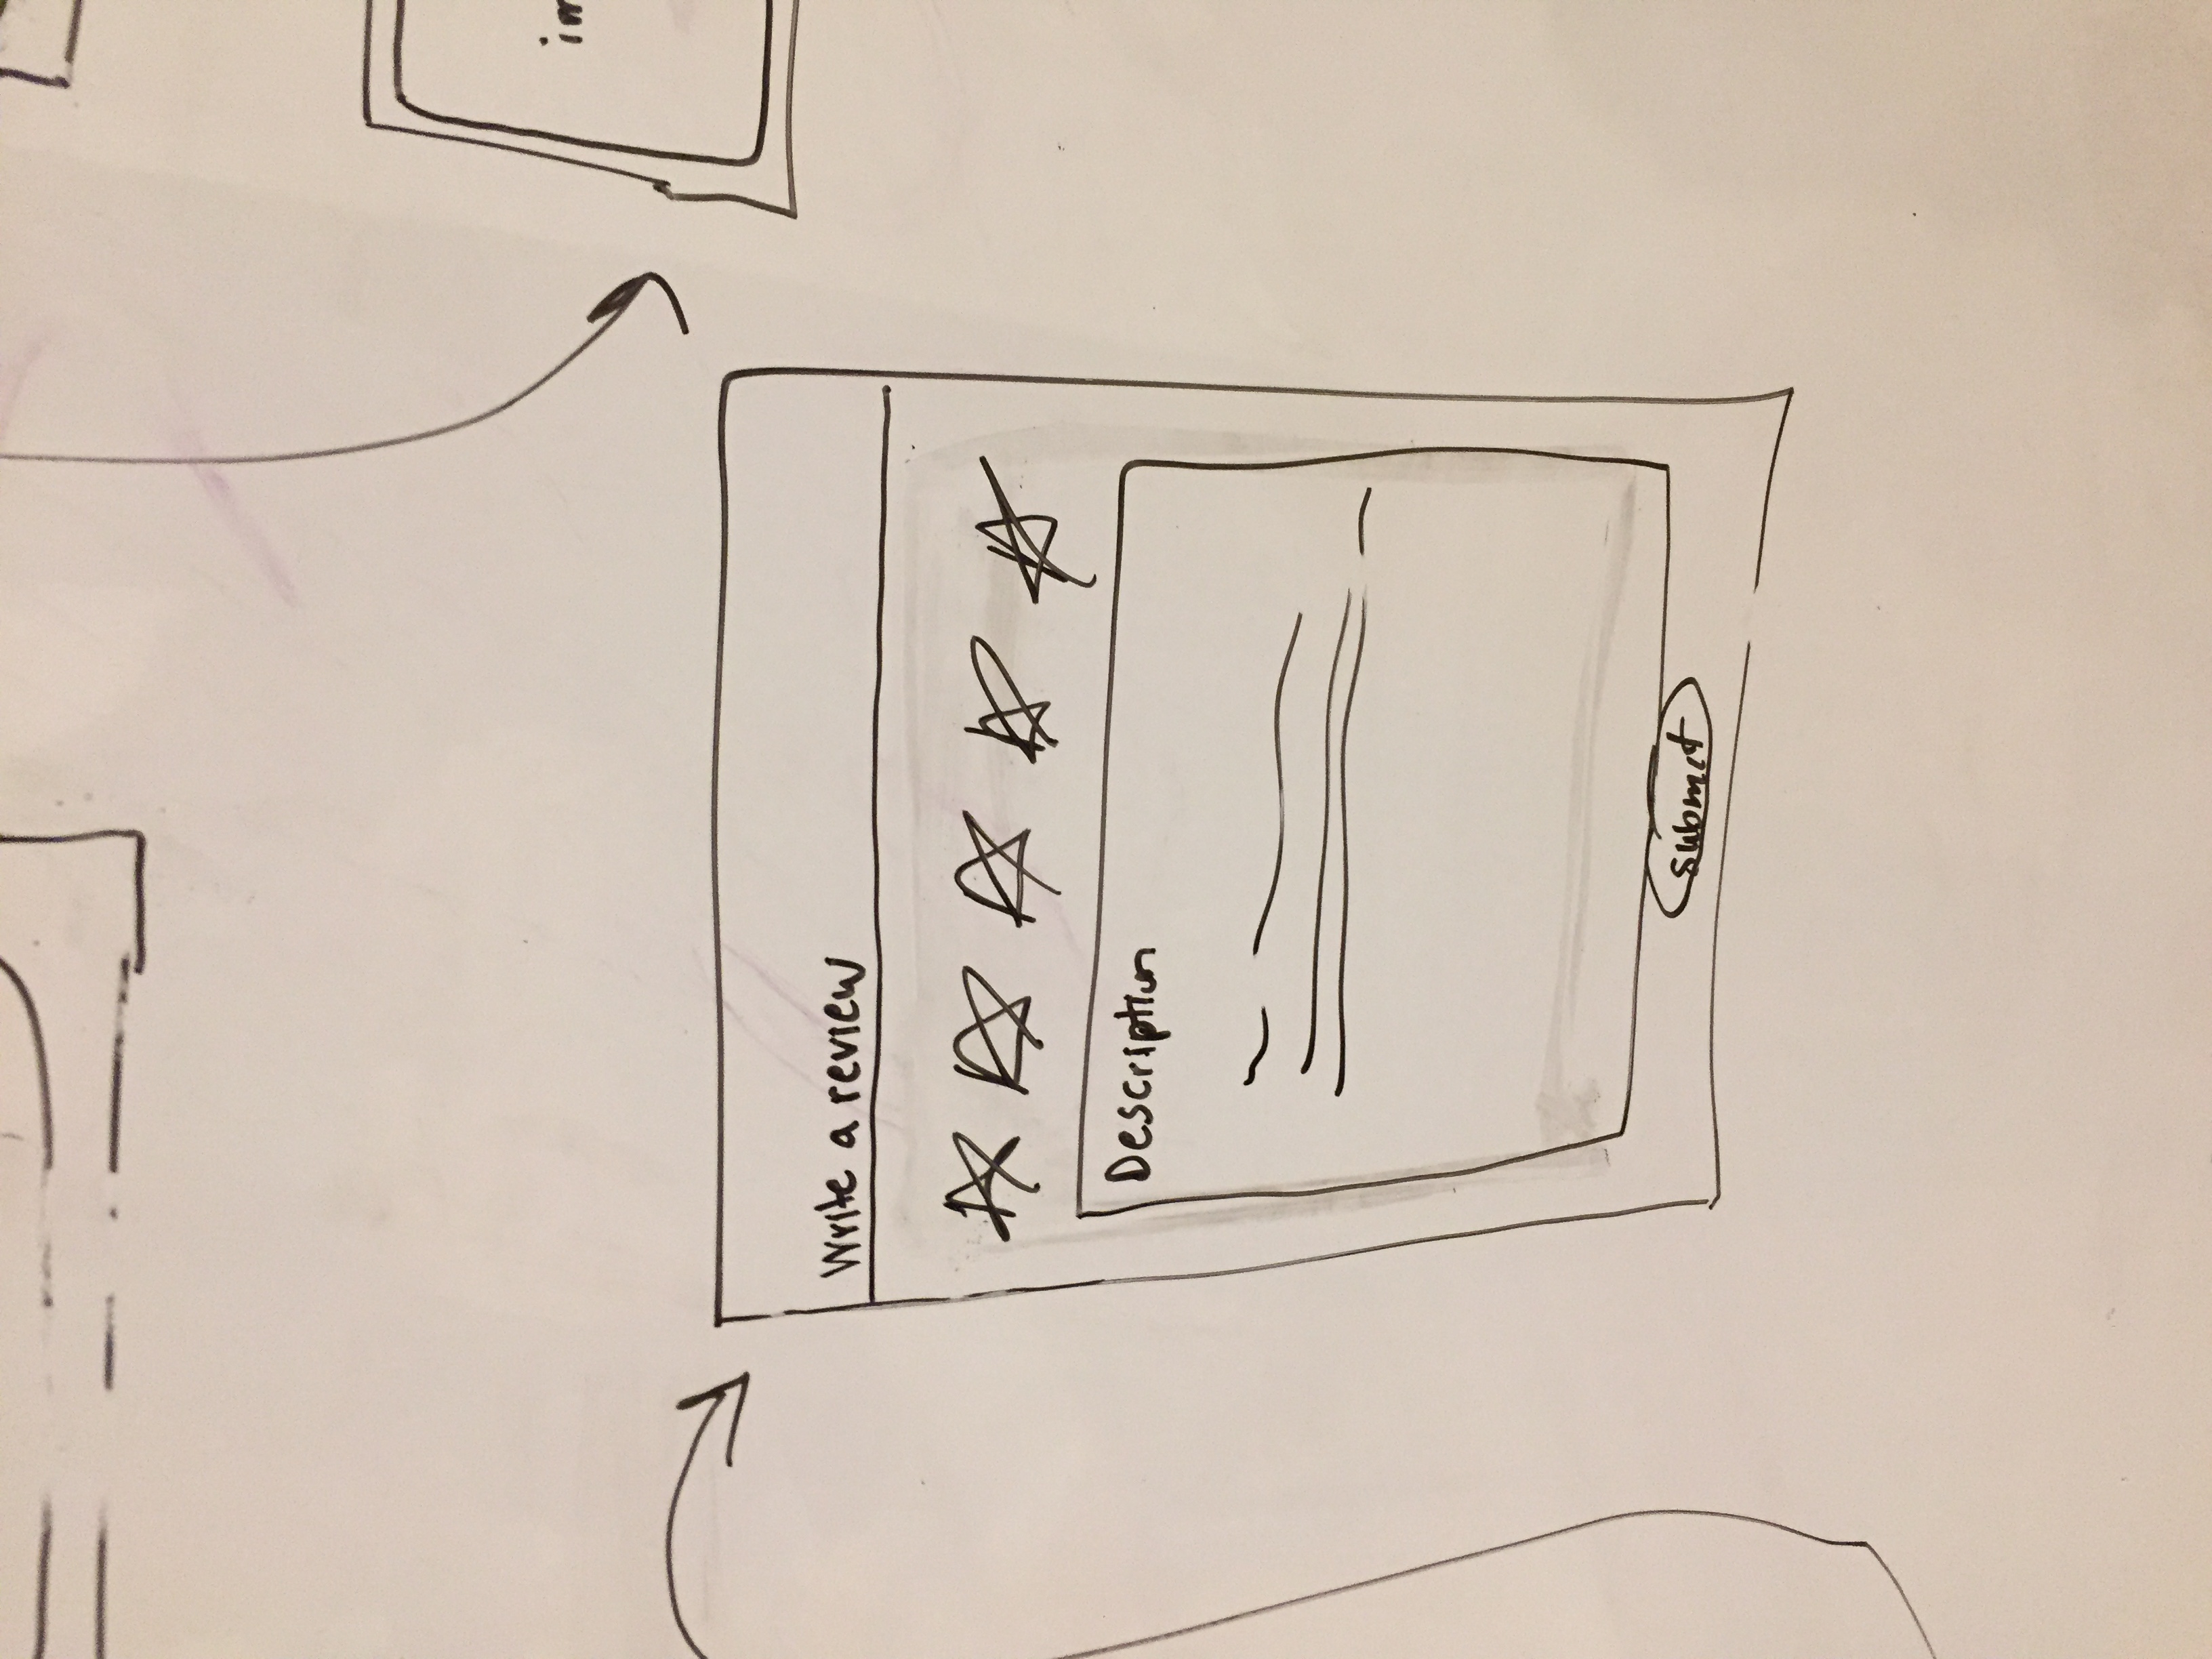 im
Write a review
Description
submit